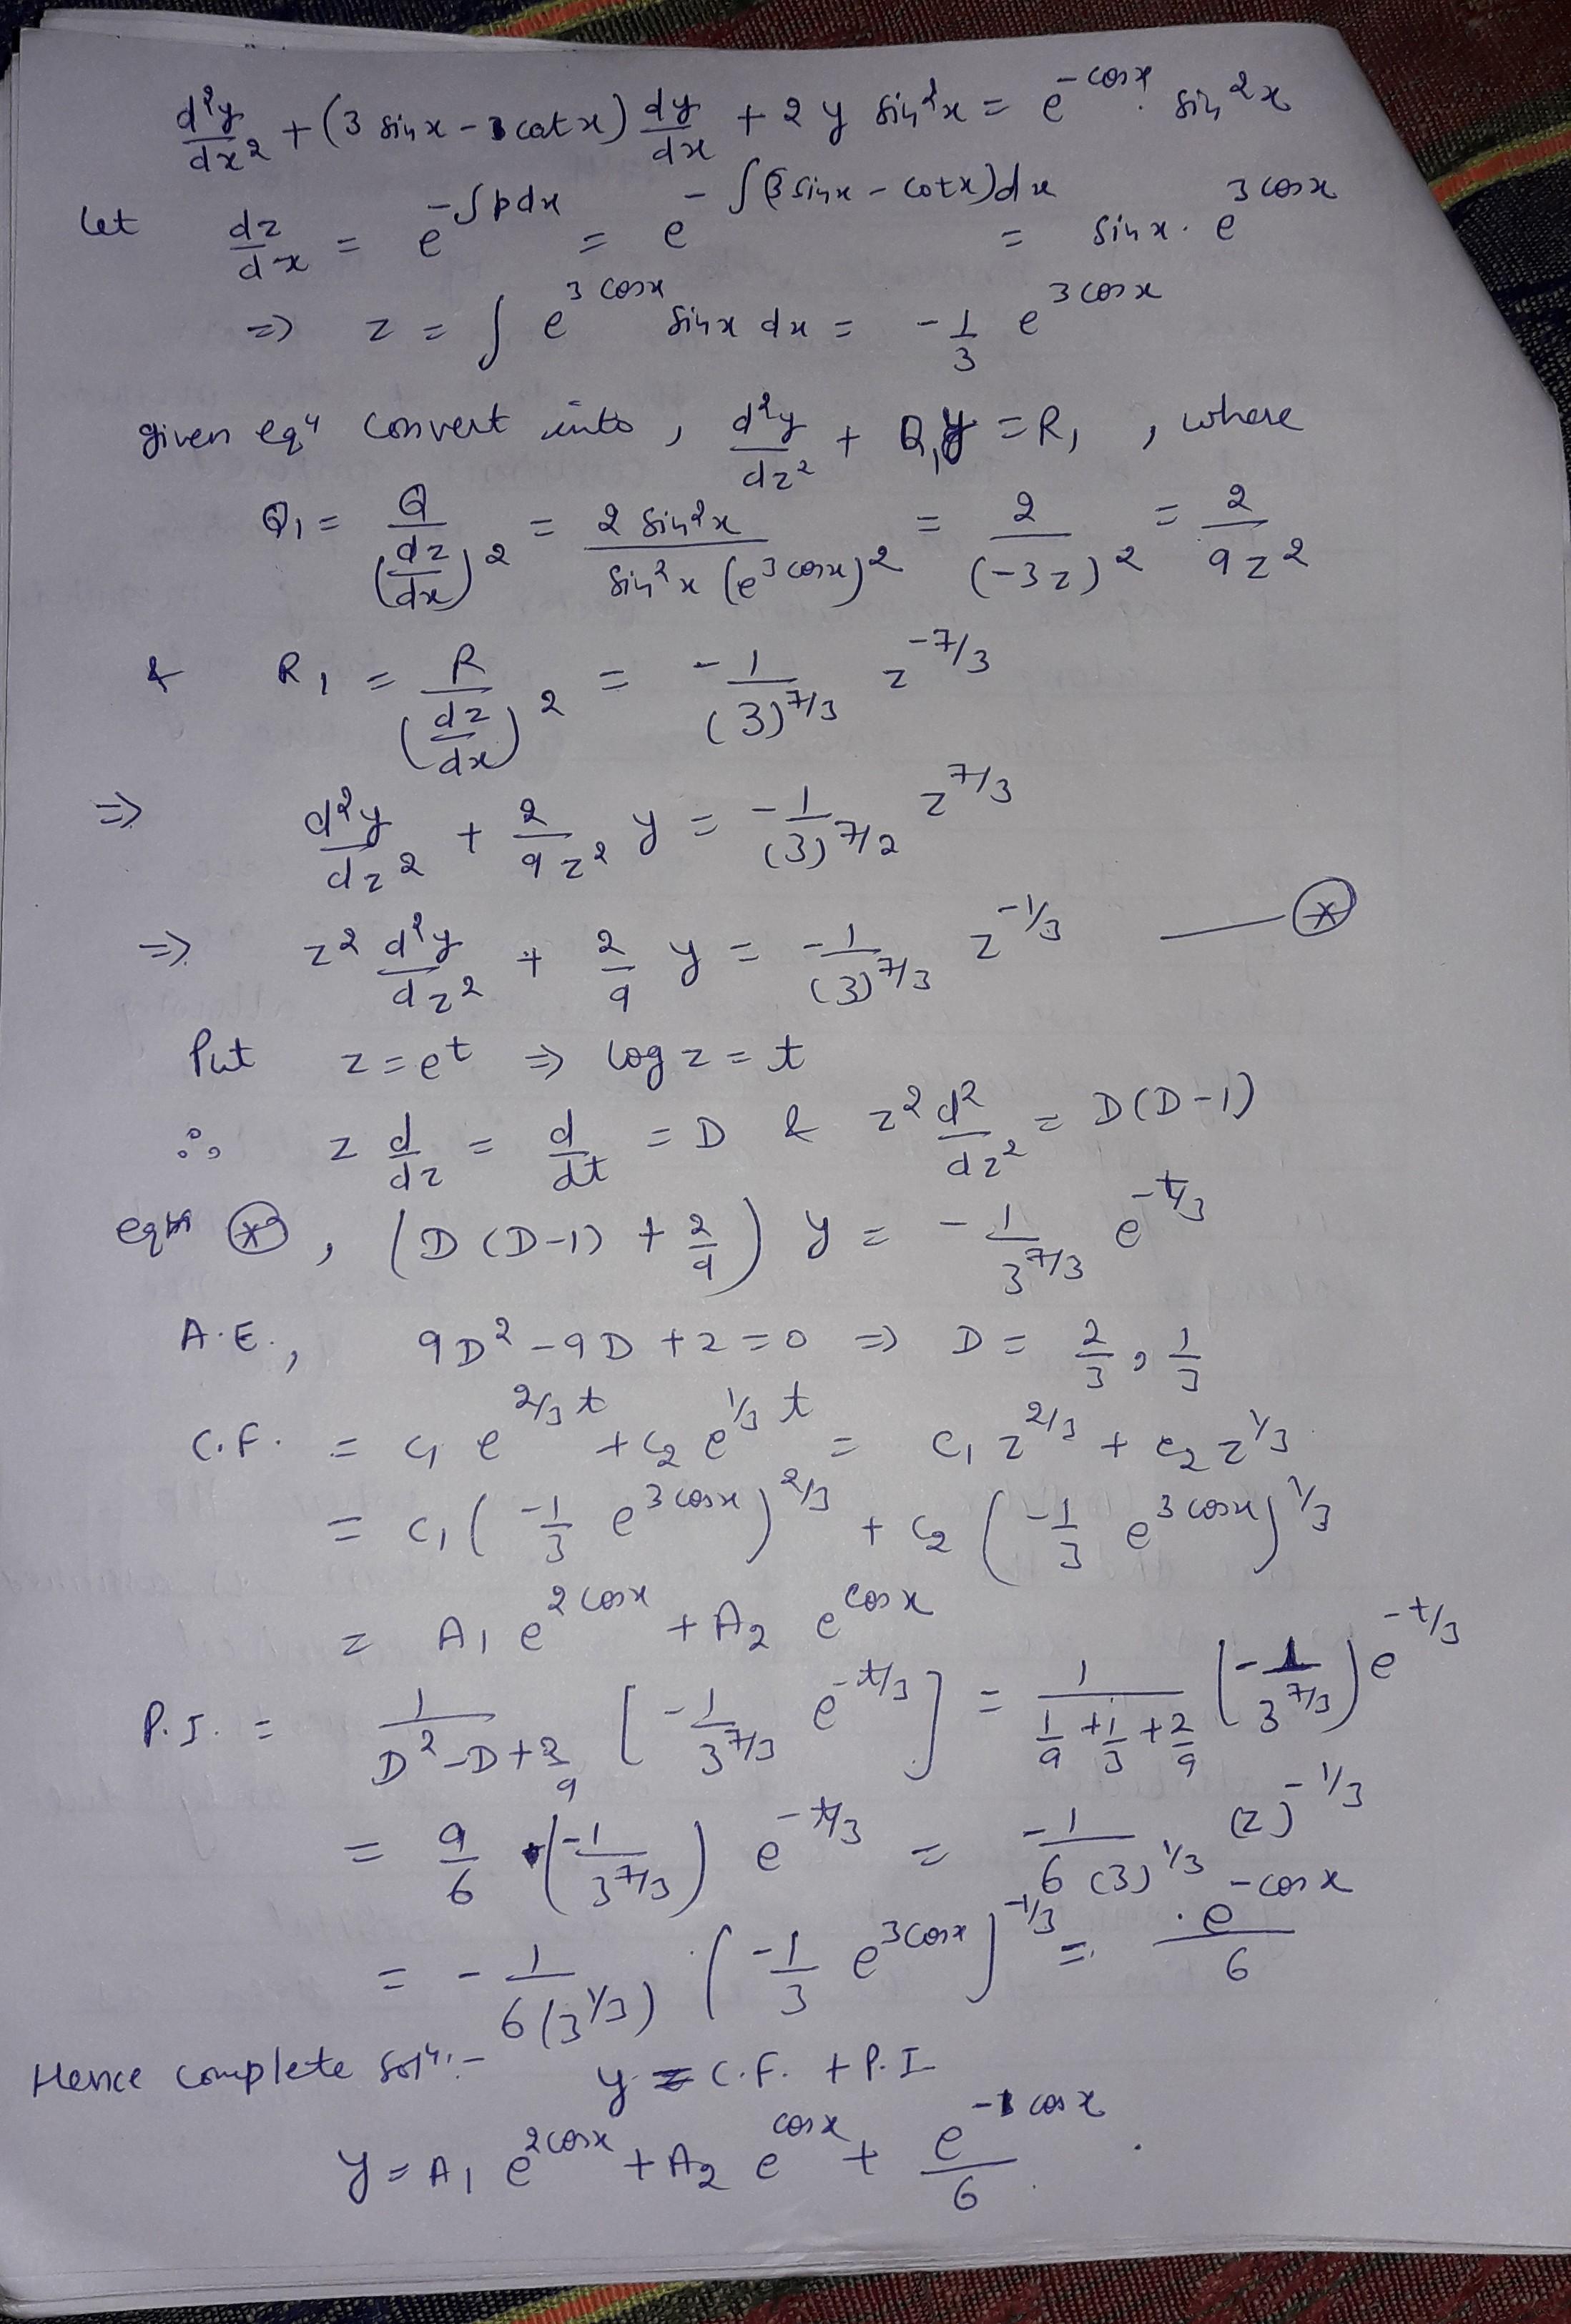 d²y/dx² + (3 sin x - cot x) dy/dx + 2 y sin²x = e^(-cos x) . sin²x
let dz/dx = e^(-∫p dx) = e^(-∫(3 sin x - cot x) dx) = sin x . e^(3 cos x)
=> z = ∫ e^(3 cos x) sin x dx = -1/3 e^(3 cos x)
given eqn convert into , d²y/dz² + Q₁y = R₁ , where
Q₁ = Q/(dz/dx)² = 2 sin²x/(sin²x (e^(3 cos x))²) = 2/(-3z)² = 2/(9z²)
& R₁ = R/(dz/dx)² = -1/(3)^(7/3) z^(-7/3)
=> d²y/dz² + 2/(9z²) y = -1/(3)^(7/2) z^(7/3)
=> z² d²y/dz² + 2/9 y = -1/(3)^(7/3) z^(-1/3) — ⊛
Put z = e^t => log z = t
∴ z d/dz = d/dt = D & z² d²/dz² = D(D-1)
eqn ⊛ , (D(D-1) + 2/9) y = -1/3^(7/3) e^(-t/3)
A.E., 9D² - 9D + 2 = 0 => D = 2/3 , 1/3
C.F. = c₁ e^(2/3 t) + c₂ e^(1/3 t) = c₁ z^(2/3) + c₂ z^(1/3)
= c₁ (-1/3 e^(3 cos x))^(2/3) + c₂ (-1/3 e^(3 cos x))^(1/3)
= A₁ e^(2 cos x) + A₂ e^(cos x)
P.I. = 1/(D² - D + 2/9) [-1/3^(7/3) e^(-t/3)] = 1/(1/9 + 1/3 + 2/9) (-1/3^(7/3)) e^(-t/3)
= 9/6 (-1/3^(7/3)) e^(-t/3) = -1/(6 (3)^(1/3)) . (z)^(-1/3)
= -1/(6(3^(1/3))) . (-1/3 e^(3 cos x))^(-1/3) = . e^(-cos x)/6
Hence complete soln:- y = C.F. + P.I
y = A₁ e^(2 cos x) + A₂ e^(cos x) + e^(-cos x)/6 .